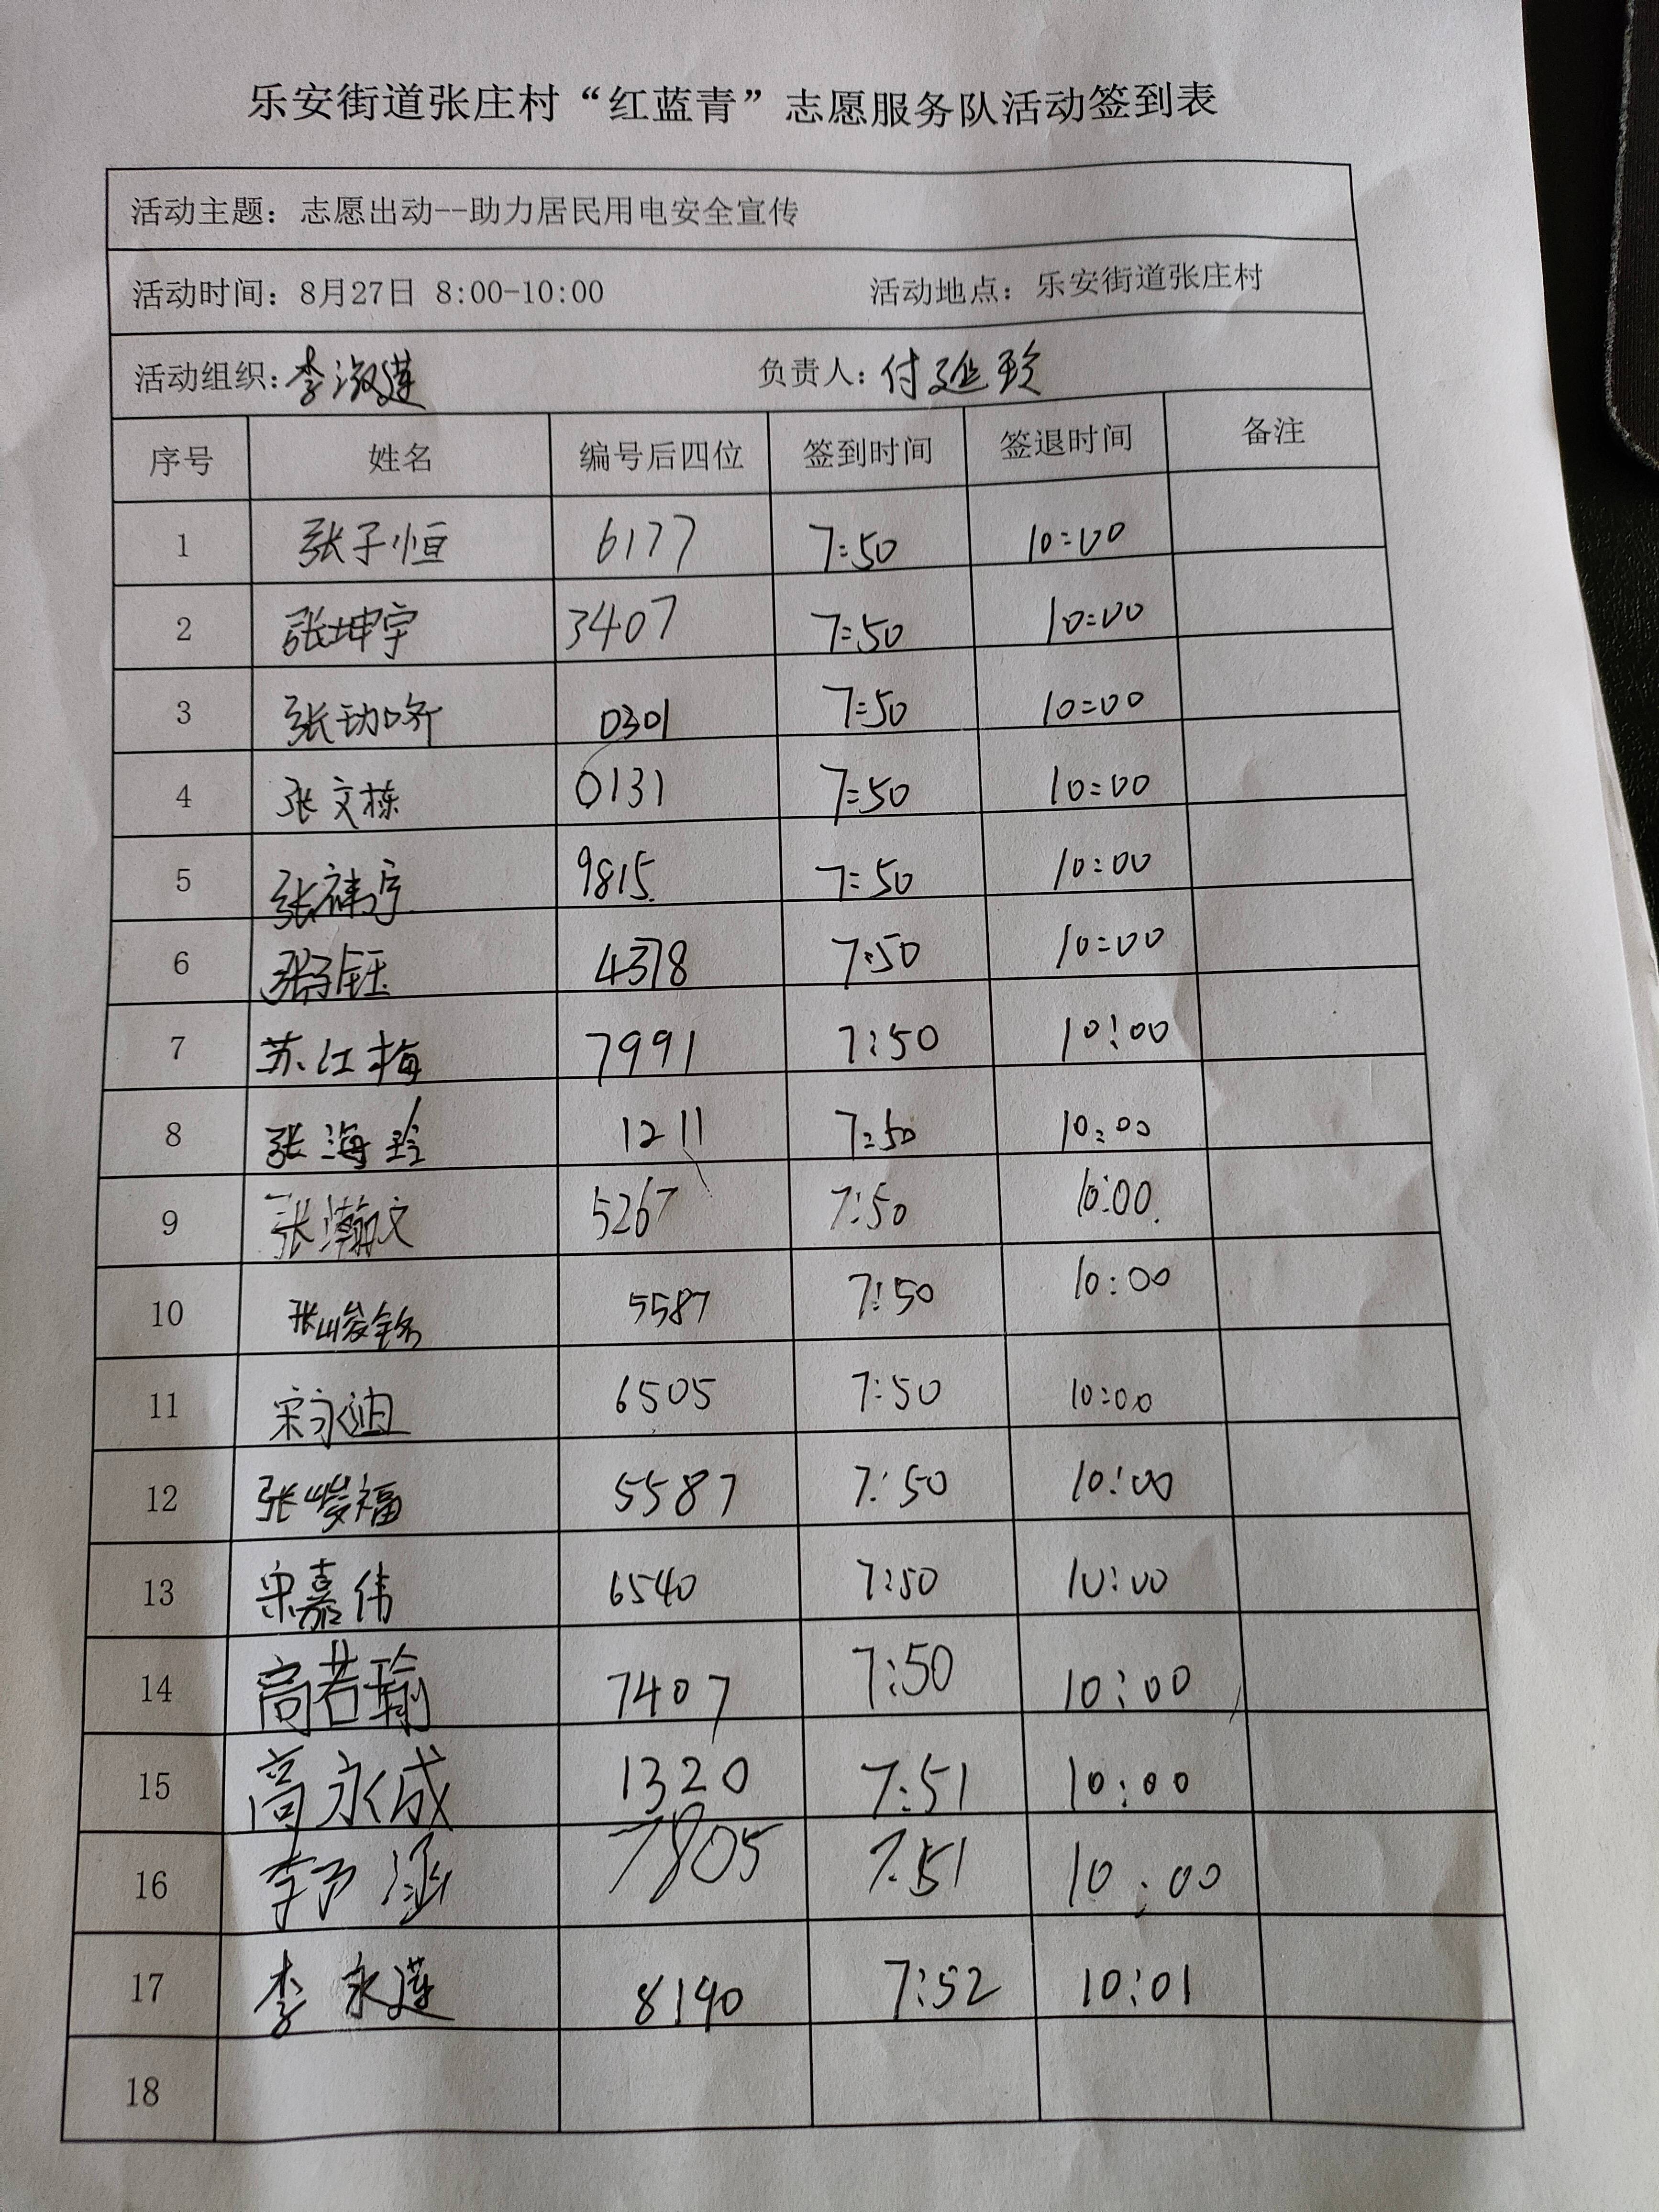 乐安街道张庄村“红蓝青”志愿服务队活动签到表
活动主题：志愿出动--助力居民用电安全宣传
活动时间：8月27日 8:00-10:00 活动地点：乐安街道张庄村
活动组织：李淑莲 负责人：付延玲
序号 姓名 编号后四位 签到时间 签退时间 备注
1 张子恒 6177 7:50 10:00
2 张坤宇 3407 7:50 10:00
3 0301 7:50 10:00
4 张文栋 0131 7:50 10:00
5 张祎宁 9815 7:50 10:00
6 张子钰 4378 7:50 10:00
7 苏红梅 7991 7:50 10:00
8 张海玲 1211 7:50 10:00
9 张瀚文 5267 7:50 10:00
10 张峻铭 5587 7:50 10:00
11 宋永迪 6505 7:50 10:00
12 张峻福 5587 7:50 10:00
13 宋嘉伟 6540 7:50 10:00
14 高若瑜 7407 7:50 10:00
15 高永成 1320 7:51 10:00
16 李予涵 7805 7:51 10:00
17 李永莲 8190 7:52 10:01
18